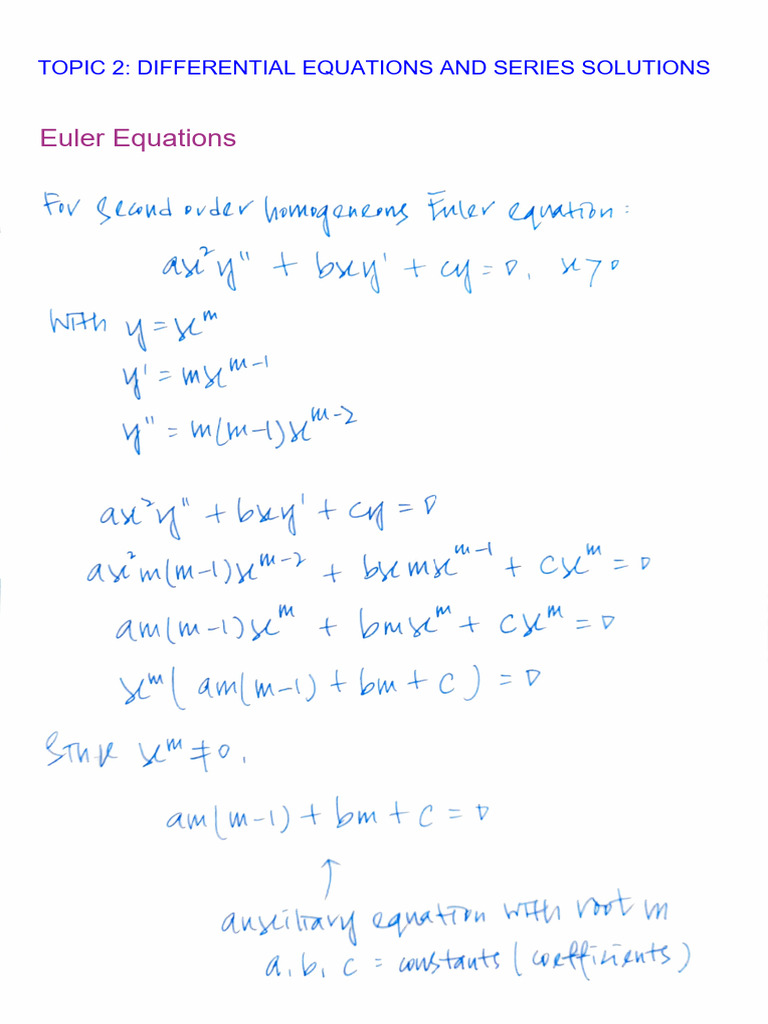 TOPIC 2: DIFFERENTIAL EQUATIONS AND SERIES SOLUTIONS
Euler Equations
For second order homogeneous Euler equation:
ax²y'' + bxy' + cy = 0, x > 0
With y = x^m
y' = mx^(m-1)
y'' = m(m-1)x^(m-2)
ax²y'' + bxy' + cy = 0
ax²m(m-1)x^(m-2) + bxmx^(m-1) + cx^m = 0
am(m-1)x^m + bmx^m + cx^m = 0
x^m(am(m-1) + bm + c) = 0
Since x^m ≠ 0,
am(m-1) + bm + c = 0
↑
auxiliary equation with root m
a, b, c = constants (coefficients)